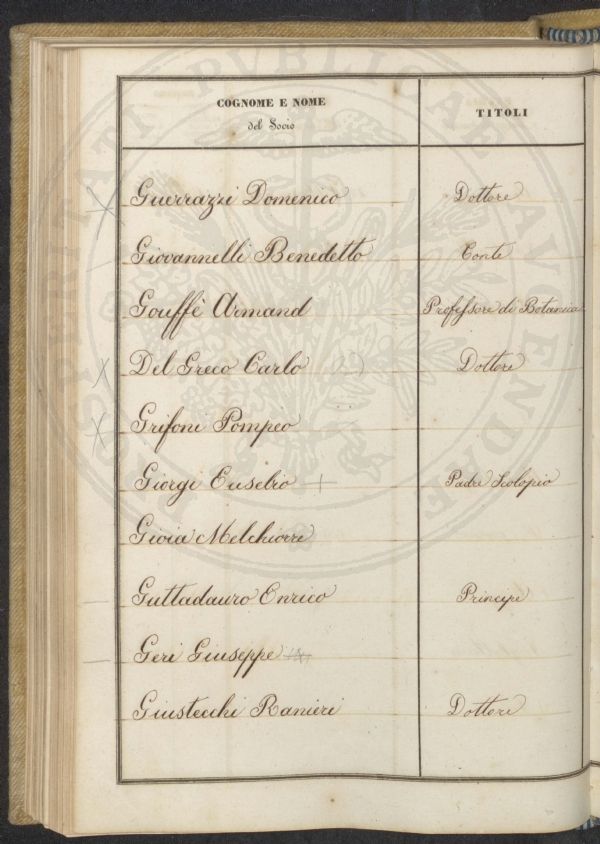 COGNOME E NOME
del Socio
TITOLI
Guerrazzi Domenico Dottore
Giovannelli Benedetto Conte
Gouffè Armand Professore di Botanica
Del Greco Carlo Dottore
Grifoni Pompeo
Giorgi Eusebio + Padre Scolopio
Gioia Melchiorre
Guttadauro Enrico Principe
Geri Giuseppe
Giustecchi Ranieri Dottore
PROSPERITATI PUBLICAE AUGENDAE